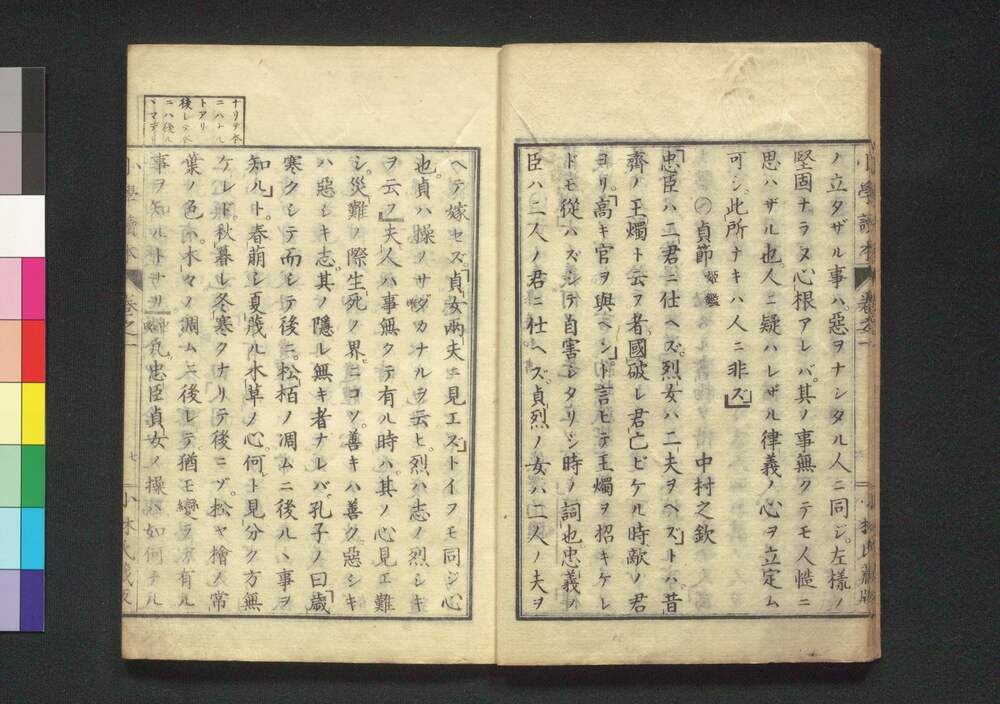 小學讀本 卷之一 小林氏藏版
ノ立タザル事ハ。惡ヲナシタル人ニ同ジ。左樣ノ
堅固ナラヌ心根アレバ。其ノ事無クテモ人慥ニ
思ハザル也人ニ疑ハレザル律義ノ心ヲ立定ム
可シ。此所ナキハ人ニ非ズ」
貞節 姬鑑 中村之欽
「忠臣ハ二君ニ仕ヘズ。烈女ハ二夫ヲヘズ」トハ。昔
齊ノ王燭ト云フ者。國破レ君亡ビケル時。敵ノ君
ヨリ。「高キ官ヲ與ヘン」ト言ヒテ王燭ヲ招キケレ
ドモ從ハズシテ自害シタリシ時ノ詞也。忠義ノ
臣ハ二人ノ君ニ仕ヘズ。貞烈ノ女ハ二人ノ夫ヲ
ヘテ嫁セズ。「貞女兩夫ニ見エズ」トイフモ同ジ心
也。貞ハ操ノサダカナルヲ云ヒ。烈ハ志ノ烈シキ
ヲ云フ」夫人ハ事無クテ有ル時ハ。其ノ心見エ難
シ。災難ノ際生死ノ界ニコソ。善キハ善ク惡シキ
ハ惡シキ志。其ノ隱レ無キ者ナレバ。孔子ノ曰「歲
寒クシテ而シテ後ニ。松栢ノ凋ムニ後ルヽ事ヲ
知ル」ト。春萠シ夏茂ル木草ノ心。何ト見分ク方無
ケレド。秋暮レ冬寒クナリテ後ニゾ。松ヤ檜ノ常
葉ノ色ハ。木々ノ凋ムニ後レテ。猶モ變ラデ有ル
事ヲ知ルトナリ
忠臣貞女ノ操ハ如何ナル
小學讀本 卷之一 七 小林氏藏版
トアリ
後レ
ニハ後ル